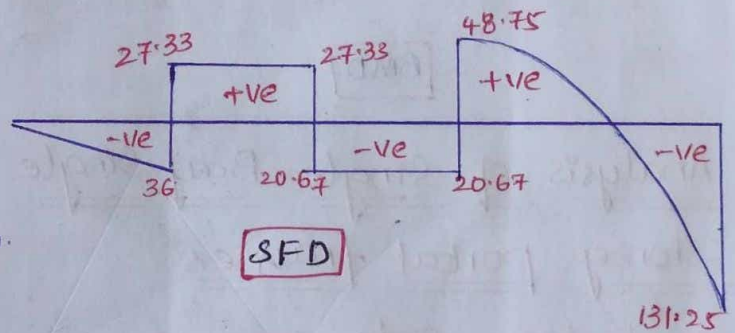 48.75
27.33 27.33
+ve +ve
-ve -ve -ve
36 20.67 20.67
SFD
131.25